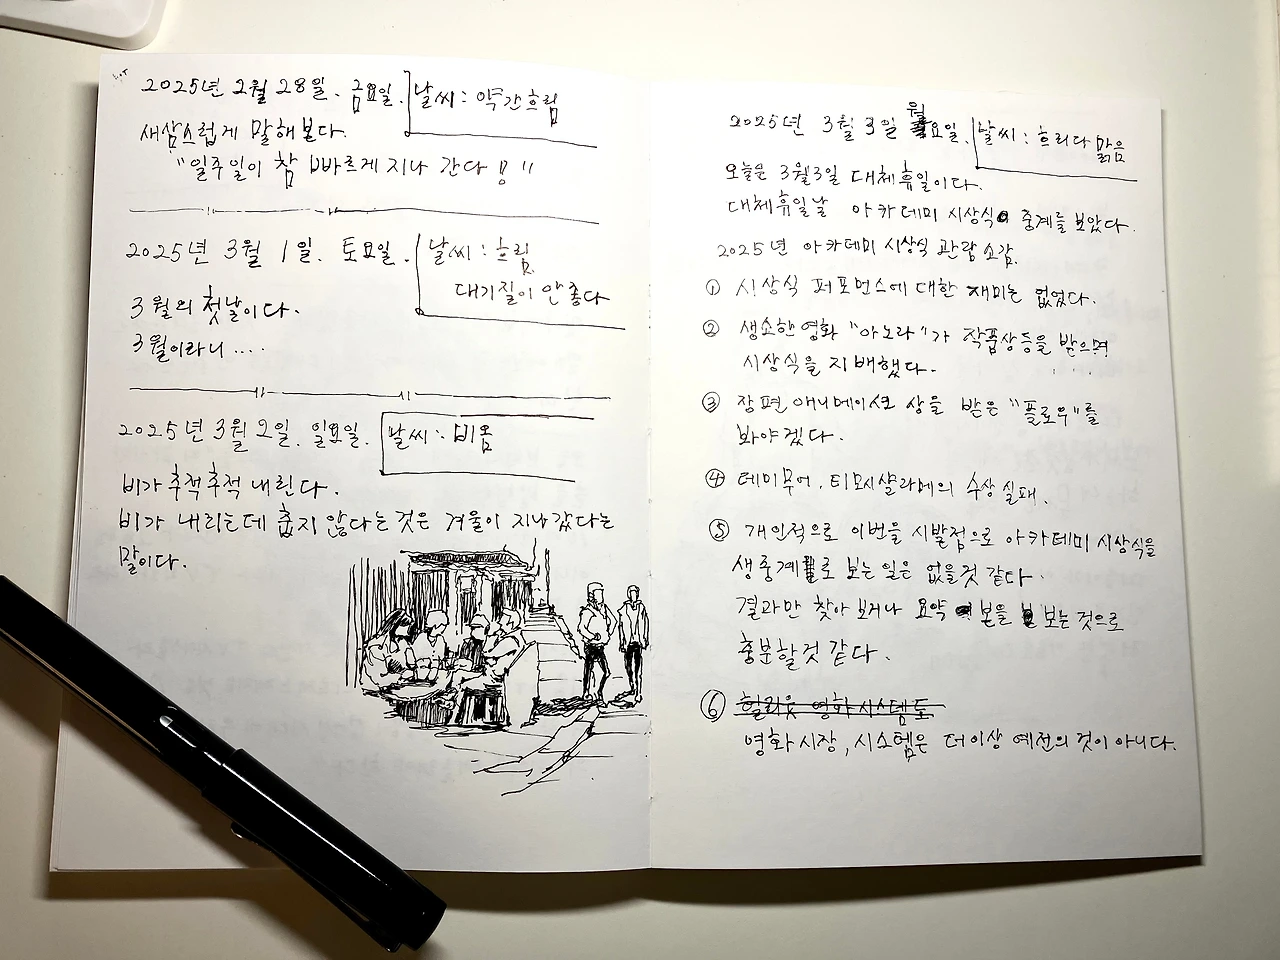 2025년 2월 28일. 금요일. 날씨: 약간흐림
새삼스럽게 말해본다.
"일주일이 참 빠르게 지나 간다!"
2025년 3월 1일. 토요일. 날씨: 흐림
대기질이 안좋다
3월의 첫날이다.
3월이라니....
2025년 3월 2일. 일요일. 날씨: 비옴
비가 추적추적 내린다.
비가 내리는데 춥지 않다는 것은 겨울이 지나갔다는
말이다.
2025년 3월 3일 월요일. 날씨: 흐리다 맑음
오늘은 3월3일 대체휴일이다.
대체휴일날 아카데미 시상식 중계를 보았다.
2025년 아카데미 시상식 관람 소감.
① 시상식 퍼포먼스에 대한 재미는 없었다.
② 생소한 영화 "아노라"가 작품상등을 받으며
시상식을 지배했다.
③ 장편 애니메이션 상을 받은 "플로우"를
봐야겠다.
④ 데미무어, 티모시샬라메의 수상 실패.
⑤ 개인적으로 이번을 시발점으로 아카데미 시상식을
생중계로 보는 일은 없을것 같다.
결과만 찾아 보거나 요약 본을 보는 것으로
충분할것 같다.
⑥ 헐리웃 영화 시스템도
영화 시장, 시스템은 더이상 예전의 것이 아니다.